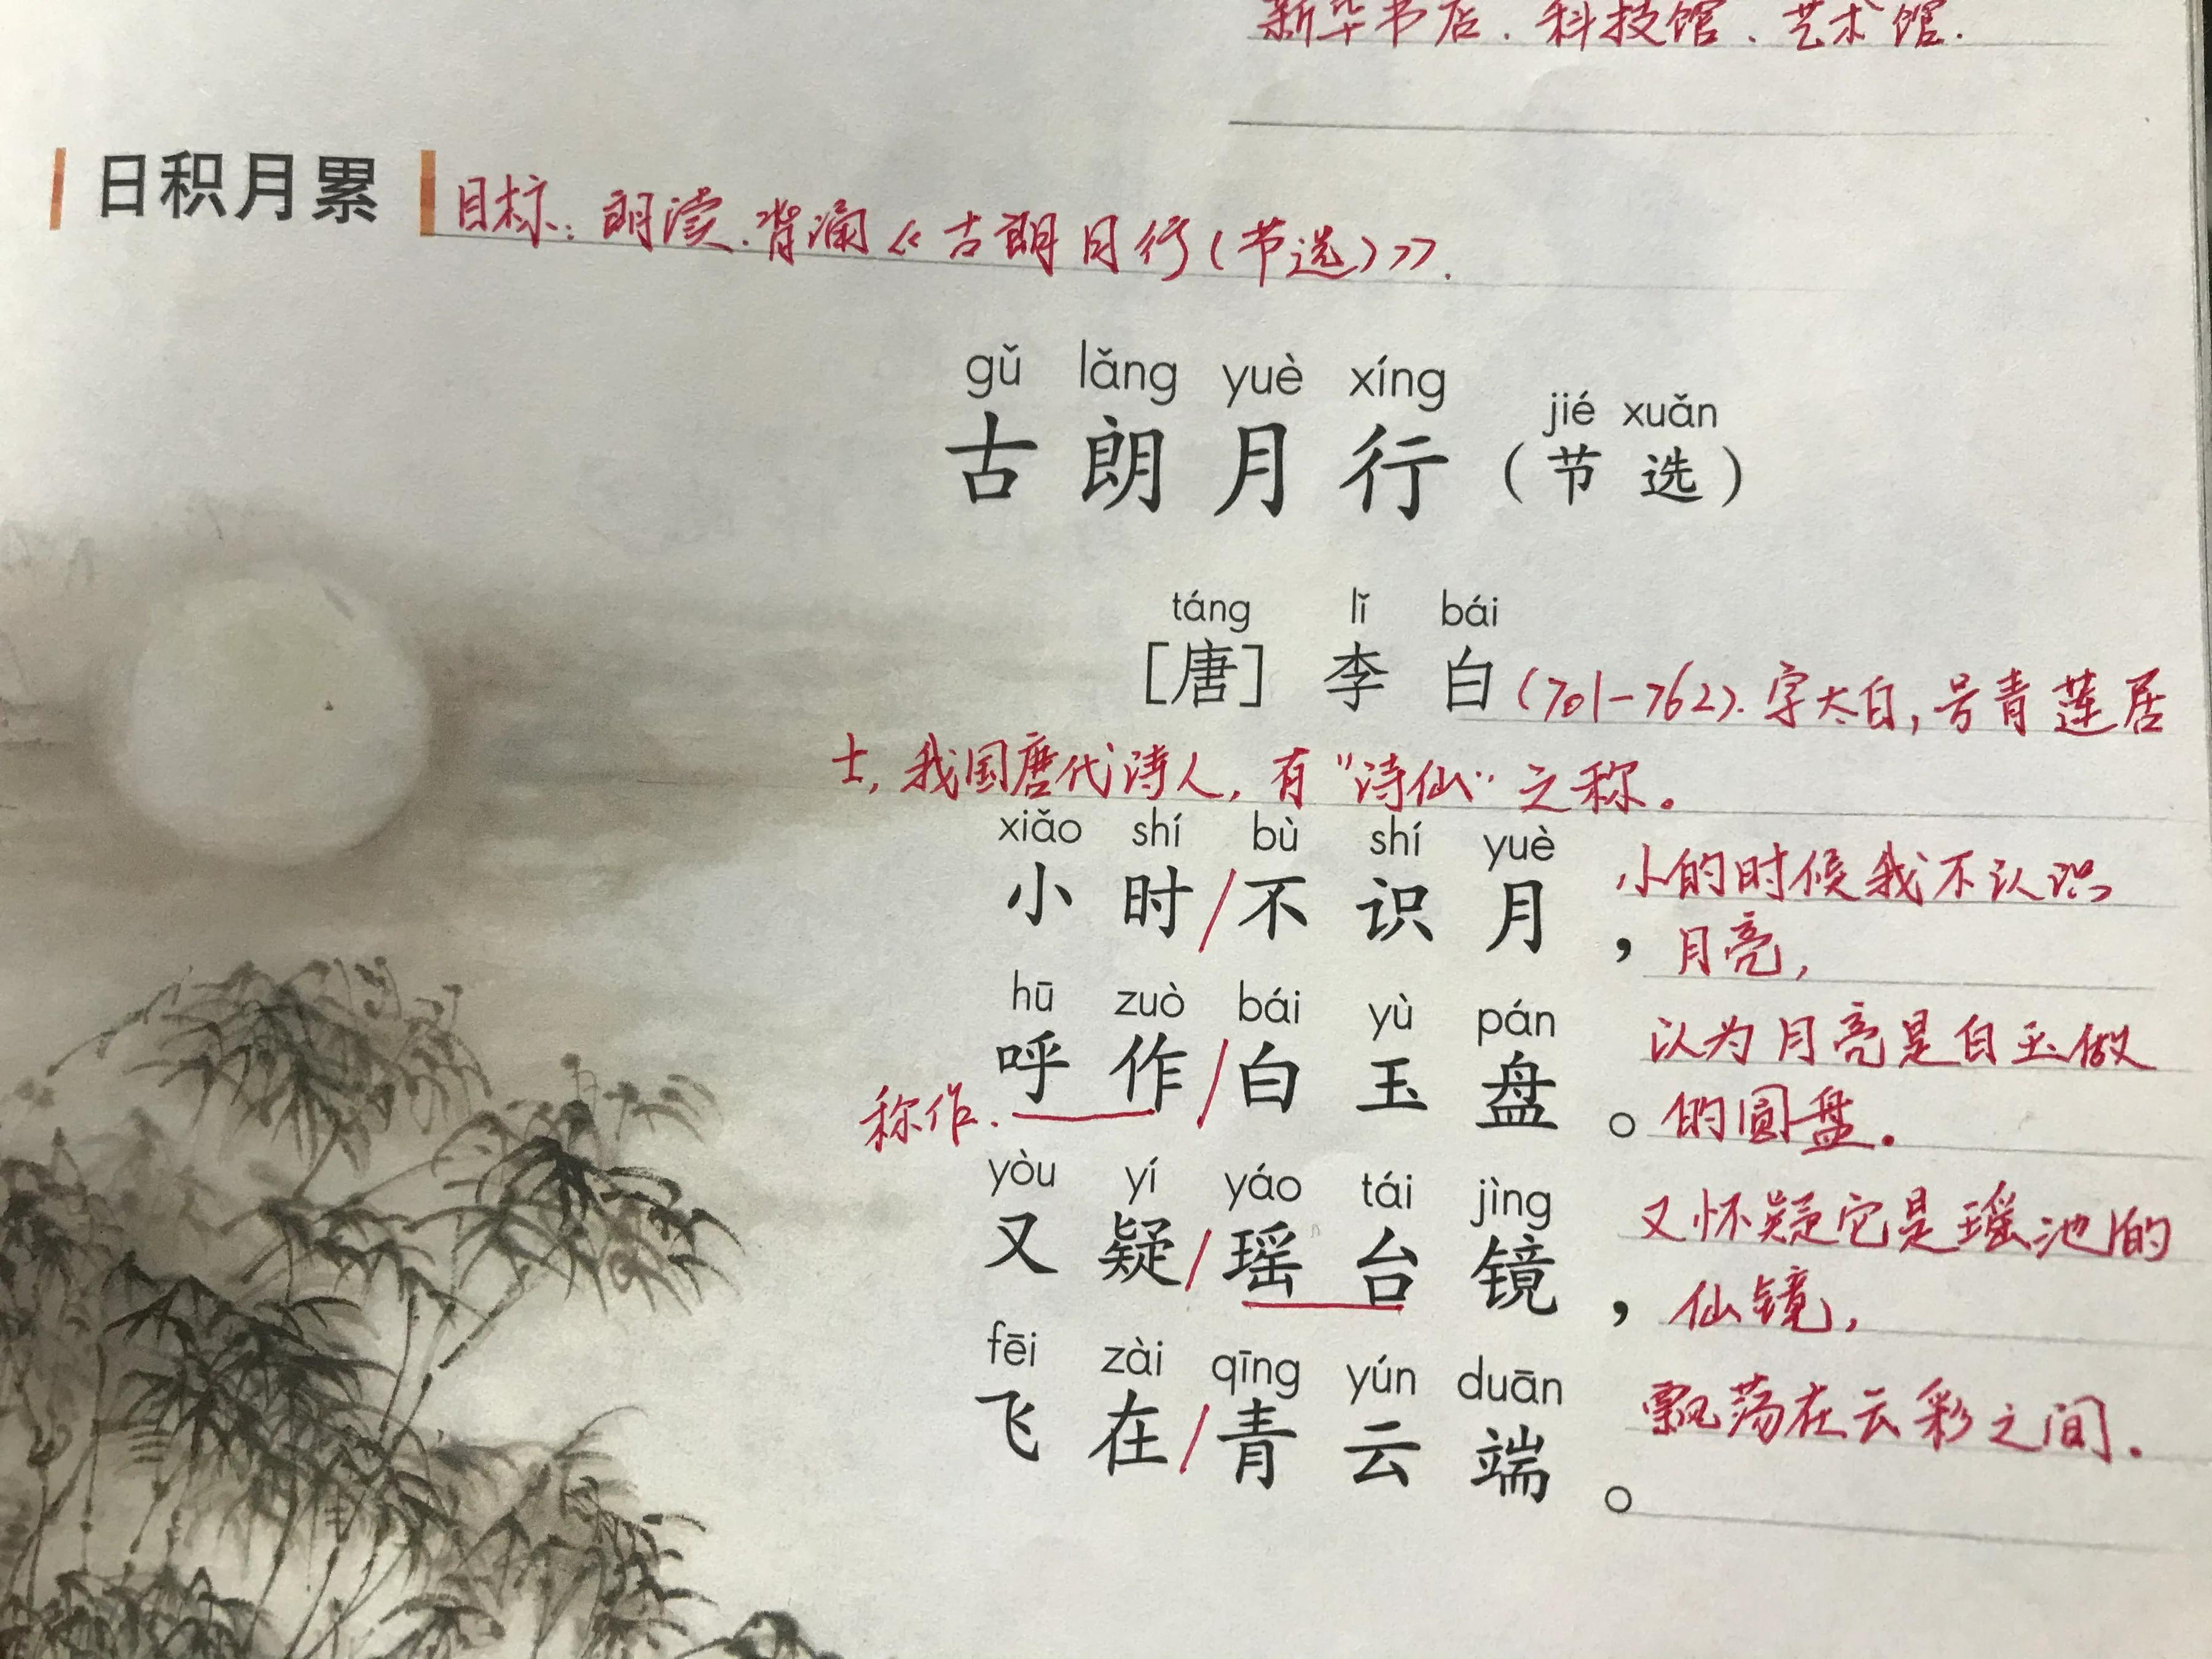 新华书店、科技馆、艺术馆.
日积月累 目标：朗读、背诵《古朗月行(节选)》.
gǔ lǎng yuè xíng jié xuǎn
古朗月行（节选）
táng lǐ bái
[唐] 李白 (701-762). 字太白, 号青莲居
士, 我国唐代诗人, 有“诗仙”之称。
xiǎo shí bù shí yuè
小时/不识月， 小的时候我不认识
月亮,
hū zuò bái yù pán
呼作/白玉盘。 以为月亮是白玉做
称作. 的圆盘.
yòu yí yáo tái jìng
又疑/瑶台镜， 又怀疑它是瑶池的
仙镜,
fēi zài qīng yún duān
飞在/青云端。 飘荡在云彩之间.